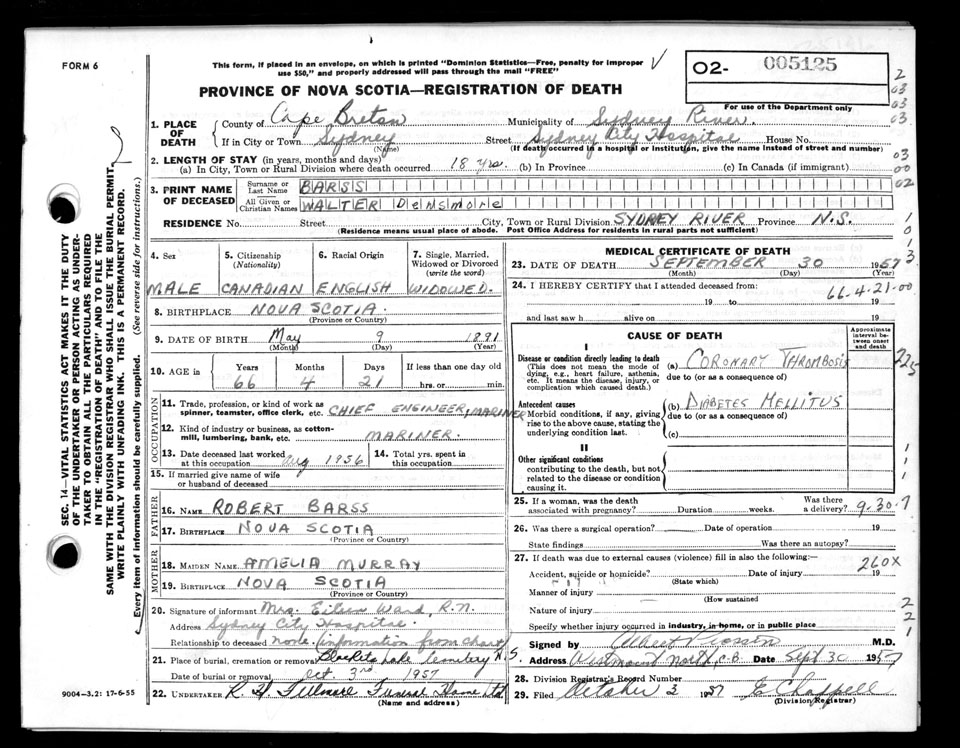 FORM 6
This form, if placed in an envelope, on which is printed "Dominion Statistics—Free, penalty for improper
use $50," and properly addressed will pass through the mail "FREE"
02- 005125
For use of the Department only
PROVINCE OF NOVA SCOTIA—REGISTRATION OF DEATH
1. PLACE OF DEATH
County of Cape Breton Municipality of Sydney River
If in City or Town Sydney Street Sydney City Hospital House No.
(Name) (If death occurred in a hospital or institution, give the name instead of street and number)
2. LENGTH OF STAY (in years, months and days)
(a) In City, Town or Rural Division where death occurred 18 yrs. (b) In Province (c) In Canada (if immigrant)
3. PRINT NAME OF DECEASED
Surname or Last Name BARSS
All Given or Christian Names WALTER DENSMORE
RESIDENCE No. Street City, Town or Rural Division SYDNEY RIVER Province N.S.
(Residence means usual place of abode. Post Office Address for residents in rural parts not sufficient)
4. Sex
MALE
5. Citizenship (Nationality)
CANADIAN
6. Racial Origin
ENGLISH
7. Single, Married, Widowed or Divorced (write the word)
WIDOWED.
8. BIRTHPLACE NOVA SCOTIA
(Province or Country)
9. DATE OF BIRTH May 9 1891
(Month) (Day) (Year)
10. AGE in Years Months Days If less than one day old
66 4 21 hrs. or min.
OCCUPATION
11. Trade, profession, or kind of work as
spinner, teamster, office clerk, etc. CHIEF ENGINEER, MARINER
12. Kind of industry or business, as cotton-
mill, lumbering, bank, etc. MARINER.
13. Date deceased last worked
at this occupation Aug 1956
14. Total yrs. spent in
this occupation
15. If married give name of wife
or husband of deceased
FATHER
16. NAME ROBERT BARSS
17. BIRTHPLACE NOVA SCOTIA
(Province or Country)
MOTHER
18. MAIDEN NAME AMELIA MURRAY
19. BIRTHPLACE NOVA SCOTIA
(Province or Country)
20. Signature of informant Mrs. Eileen Ward, R.N.
Address Sydney City Hospital.
Relationship to deceased none (information from chart)
21. Place of burial, cremation or removal Lake Cemetery N.S.
Date of burial or removal Oct. 3rd 1957
22. UNDERTAKER R. H. Fillmore Funeral Home Ltd
(Name and address)
9004—3.2: 17-6-55
MEDICAL CERTIFICATE OF DEATH
23. DATE OF DEATH SEPTEMBER 30 1957
(Month) (Day) (Year)
24. I HEREBY CERTIFY that I attended deceased from:
66.4.21.00
19 to 19
and last saw h alive on 19
CAUSE OF DEATH
Approximate interval between onset and death
I
Disease or condition directly leading to death
(This does not mean the mode of dying, e.g., heart failure, asthenia, etc. It means the disease, injury, or complication which caused death.)
(a) CORONARY THROMBOSIS
due to (or as a consequence of)
Antecedent causes
Morbid conditions, if any, giving rise to the above cause, stating the underlying condition last.
(b) DIABETES MELLITUS
due to (or as a consequence of)
(c)
II
Other significant conditions
contributing to the death, but not related to the disease or condition causing it.
25. If a woman, was the death
associated with pregnancy? Duration weeks. Was there a delivery? 9.30.7
26. Was there a surgical operation? Date of operation 19
State findings Was there an autopsy?
27. If death was due to external causes (violence) fill in also the following:
260X
Accident, suicide or homicide? Date of injury 19
(State which)
Manner of injury
(How sustained
Nature of injury
Specify whether injury occurred in industry, in home, or in public place
Signed by M.D.
Address Westmount North, C.B. Date Sept 30 1957
28. Division Registrar's Record Number
29. Filed October 3 1957 E Chappell
(Division Registrar)
SEC. 14—VITAL STATISTICS ACT MAKES IT THE DUTY
OF THE UNDERTAKER OR PERSON ACTING AS UNDER-
TAKER TO OBTAIN ALL THE PARTICULARS REQUIRED
IN THE "REGISTRATION OF DEATH" AND TO FILE THE
SAME WITH THE DIVISION REGISTRAR WHO SHALL ISSUE THE BURIAL PERMIT.
WRITE PLAINLY WITH UNFADING INK. THIS IS A PERMANENT RECORD.
Every item of information should be carefully supplied. (See reverse side for instructions.)
2
03
03
03
03
00
02
1
0
1
3
1
1
1
2
2
1